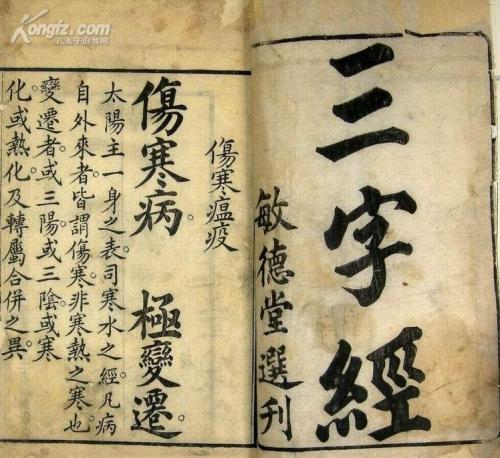 Kongfz.com
孔夫子旧书网
三字經
敏德堂選刊
傷寒瘟疫
傷寒病。極變遷。
太陽主一身之表。司寒水之經。凡病
自外來者。皆謂傷寒。非寒熱之寒也。
變遷者。或三陽。或三陰。或寒
化。或熱化。及轉屬合併之異。